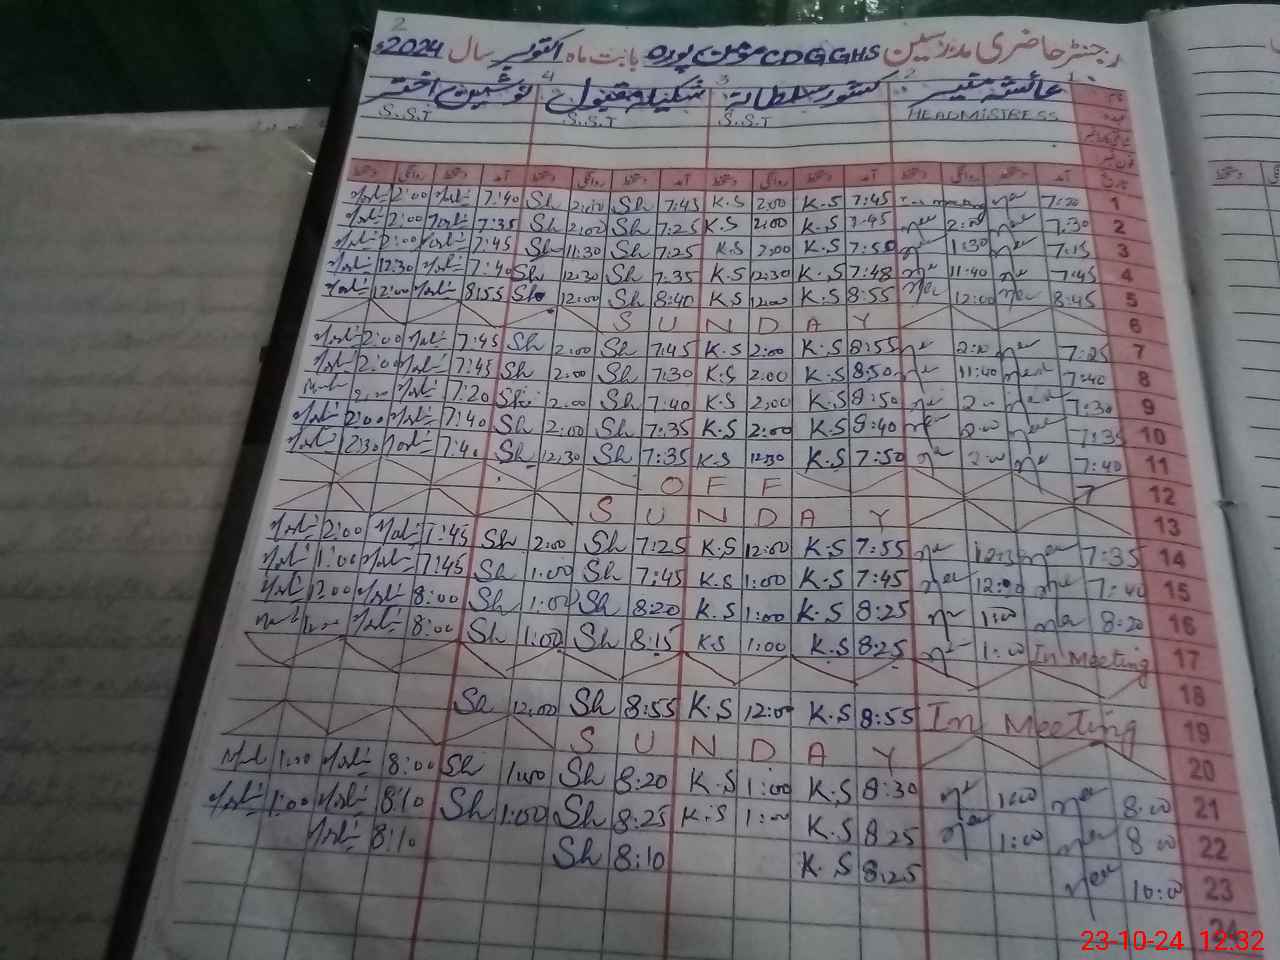 2
رجسٹر حاضری مدرسین CDGGHS مومن پورہ بابت ماہ اکتوبر سال 2024ء
1 عائشہ منیر 2 کشور سلطانہ 3 شکیلہ مقبول 4 نوشین اختر
نام
HEADMISTRESS S.S.T S.S.T S.S.T
تاریخ آمد دستخط روانگی دستخط آمد دستخط روانگی دستخط آمد دستخط روانگی دستخط آمد دستخط روانگی دستخط
1 7:20 In meeting 7:45 K.S 2:00 K.S 7:45 Sh 2:00 Sh 7:40 2:00
2 7:30 2:00 7:45 K.S 2:00 K.S 7:25 Sh 2:00 Sh 7:35 2:00
3 7:15 11:30 7:50 K.S 2:00 K.S 7:25 Sh 11:30 Sh 7:45 2:00
4 7:45 11:40 7:48 K.S 12:30 K.S 7:35 Sh 12:30 Sh 7:40 12:30
5 8:45 12:00 8:55 K.S 12:00 K.S 8:40 Sh 12:00 Sh 8:55 12:00
6 SUNDAY
7 7:25 2:00 8:55 K.S 2:00 K.S 7:45 Sh 2:00 Sh 7:45 2:00
8 7:40 11:40 8:50 K.S 2:00 K.S 7:30 Sh 2:00 Sh 7:45 2:00
9 7:30 2:00 8:50 K.S 2:00 K.S 7:40 Sh 2:00 Sh 7:20 2:00
10 7:35 2:00 8:40 K.S 2:00 K.S 7:35 Sh 2:00 Sh 7:40 2:00
11 7:40 2:00 7:50 K.S 12:30 K.S 7:35 Sh 12:30 Sh 7:40 12:30
12 OFF
13 SUNDAY
14 7:35 7:55 K.S 12:00 K.S 7:25 Sh 2:00 Sh 7:45 2:00
15 7:40 12:00 7:45 K.S 1:00 K.S 7:45 Sh 1:00 Sh 7:45 1:00
16 8:20 1:00 8:25 K.S 1:00 K.S 8:20 Sh 1:00 Sh 8:00
17 In Meeting 1:00 8:25 K.S 1:00 K.S 8:15 Sh 1:00 Sh 8:00
18
19 In Meeting 8:55 K.S 12:00 K.S 8:55 Sh 12:00 Sh
20 SUNDAY
21 8:00 1:00 8:30 K.S 1:00 K.S 8:20 Sh 1:00 Sh 8:00 1:00
22 8:00 1:00 8:25 K.S 1:00 K.S 8:25 Sh 1:00 Sh 8:10 1:00
23 10:00 8:25 K.S 8:10 Sh 8:10
24
23-10-24 12:32